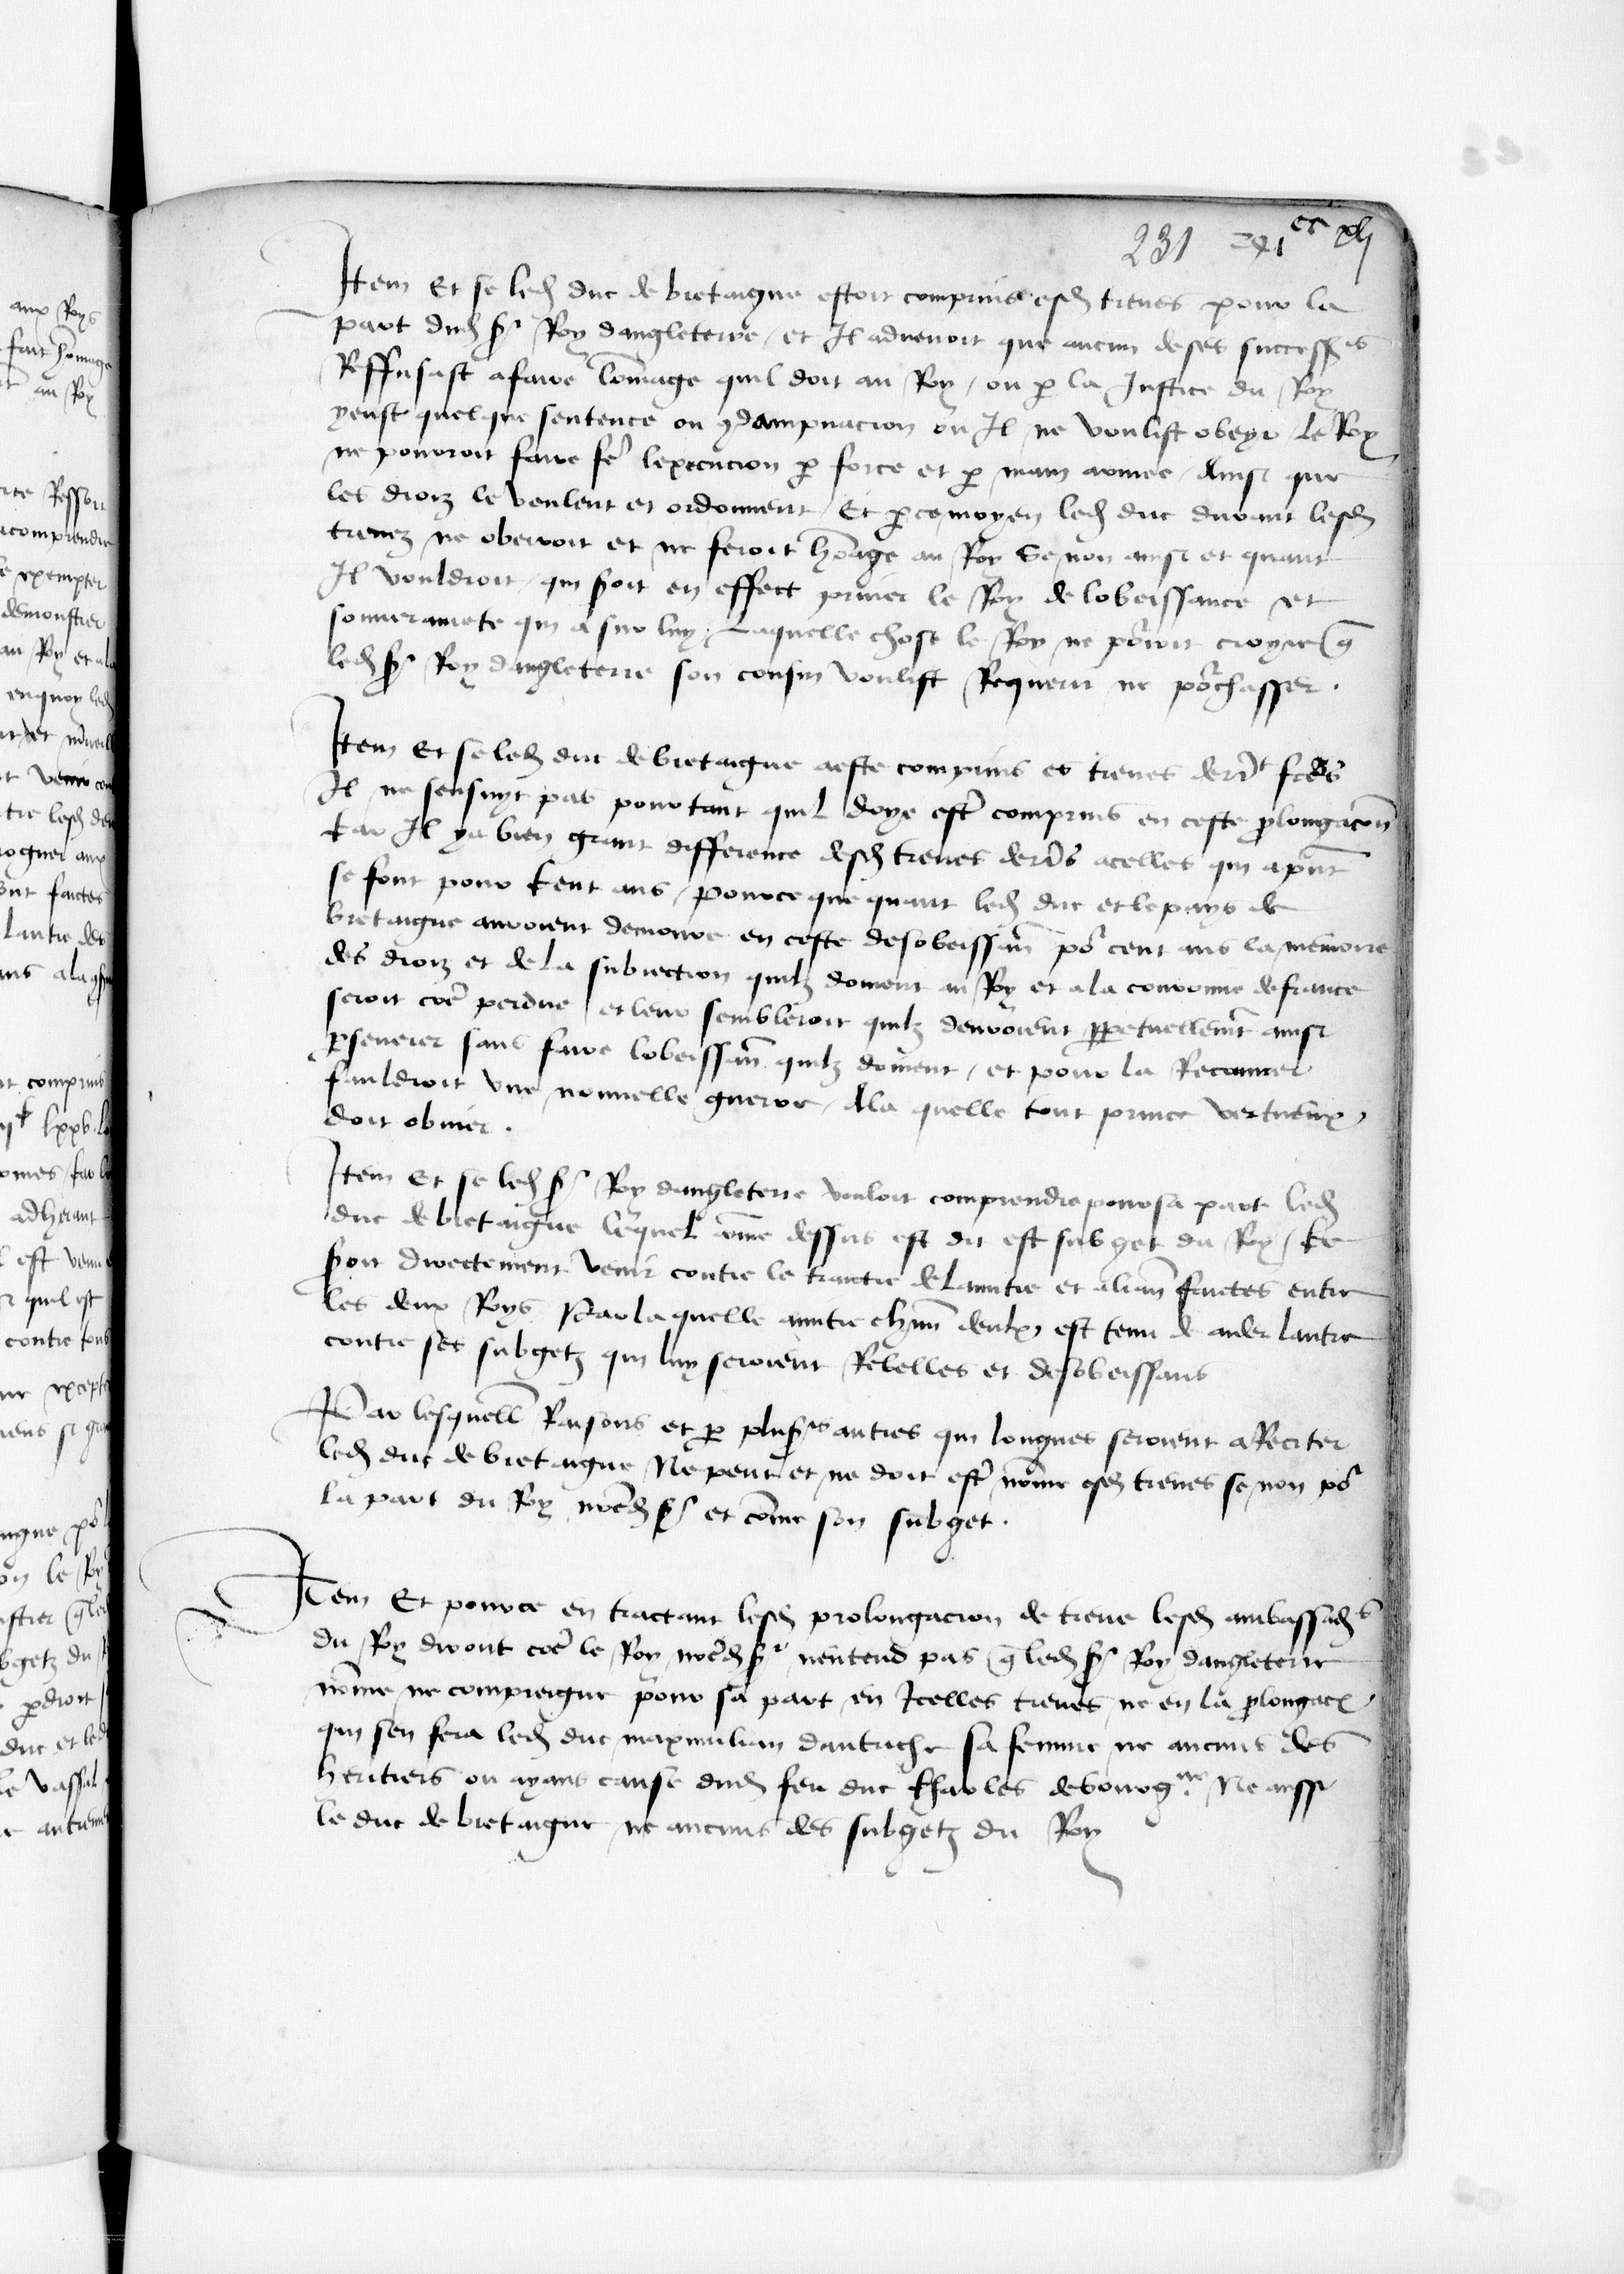 231
Item Et se led duc de bretaigne estoit comprins esd treues pour la
part dud sr Roy dangleterre / et Il aduenoit que aucun de ses success
Reffusast a faire lommage quil doit au Roy / ou p la Justice du Roy
yeust quelque sentence ou 9dampnacion ou Il ne voulist obeyr le Roy
ne pouroit faire fe lexecucion p force et p main armee / Ainsi que
les droiz le veulent et ordonnent / Et p ce moyen led duc durant lesd
treuez ne obeiroit et ne feroit homage au Roy Se non ainsi et quant
Il vouldroit / qui soit en effect priuer le Roy de lobeissance et
souuerainete qui a sur luy / Laquelle chose le Roy ne poroit croyre q
led sr Roy dangleterre son cousin voulist Requerir ne pochasser .
Item Et se led duc de bretaigne a este comprins es treues
Il ne sensuyt pas pourtant quil doye est comprins en ceste plongacon
Kar Il ya bien grant difference desd treues a celles qui apnt
se font pour Cent ans / pource que quant led duc et le pays de
bretaigne auroient demoure en ceste desobeissan po cent ans la memoire
des droiz et de la subiection quilz doiuent au Roy et a la couronne de france
seroit coe perdue / et leur sembleroit quilz deuroient ppetuellemt ainsi
pseuerer sans faire lobeissan quilz doiuent / et pour la Recouurer
fauldroit vne nouuelle guerre / A la quelle tout prince vertueux
doit obuier .
Item Et se led sr Roy dangleterre vouloit comprendre pour sa part led
duc de bretaigne lequel come dessus est dit est subget du Roy / Ce
soit directement venir contre le traictie de lamitie et alian faictes entre
les deux Roys Par la quelle amitie chun deulx est tenu de aider lautre
contre ses subgetz qui luy seroient Rebelles et desobeissans
Par lesquell Raisons et p plusrs autres qui longues seroient a Reciter
led duc de bretaigne Ne peut et ne doit est nomme esd treues se non po
la part du Roy nred sr et come son subget .
Item Et pource en tractant lesd prolongacion de treue lesd ambassad
du Roy diront coe le Roy nred sr nentend pas q led sr Roy dangleterre
nome ne compreigne pour sa part en Icelles treues ne en la plongacx
qui sen fera led duc maximilian dautriche sa femme ne aucuns des
heritiers ou ayans cause dud feu duc Charles de bourgne Ne aussi
le duc de bretaigne ne aucuns des subgetz du Roy